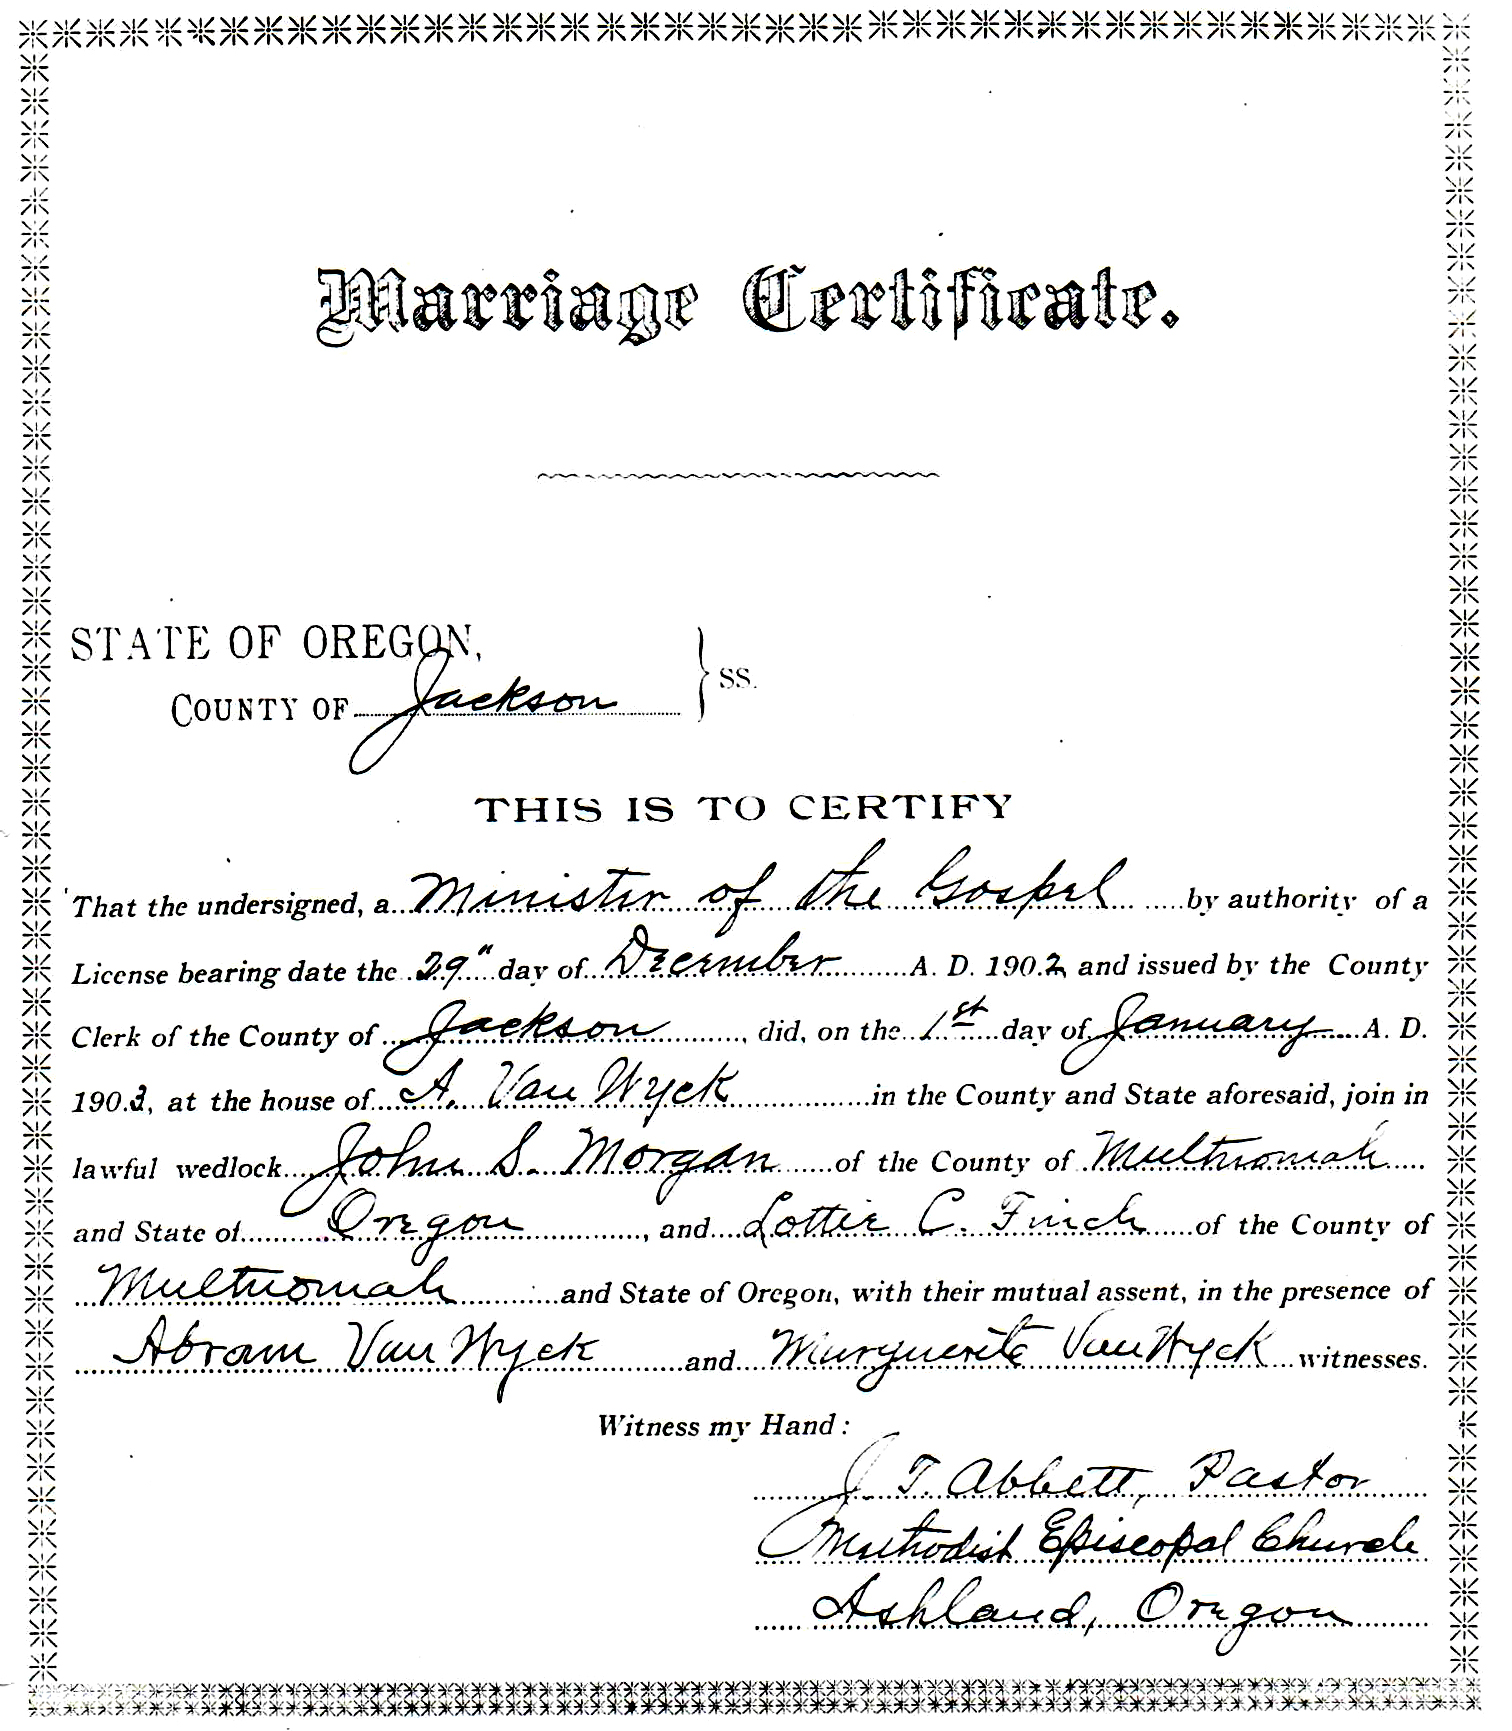 Marriage Certificate.
STATE OF OREGON,
COUNTY OF Jackson } SS.
THIS IS TO CERTIFY
That the undersigned, a Minister of the Gospel by authority of a
License bearing date the 29" day of December A. D. 1902 and issued by the County
Clerk of the County of Jackson, did, on the 1st day of January A. D.
1903, at the house of A. Van Wyck in the County and State aforesaid, join in
lawful wedlock John S. Morgan of the County of Multnomah
and State of Oregon, and Lottie C. Finch of the County of
Multnomah and State of Oregon, with their mutual assent, in the presence of
Abram Van Wyck and Marguerite Van Wyck witnesses.
Witness my Hand:
J. T. Abbett, Pastor
Methodist Episcopal Church
Ashland, Oregon